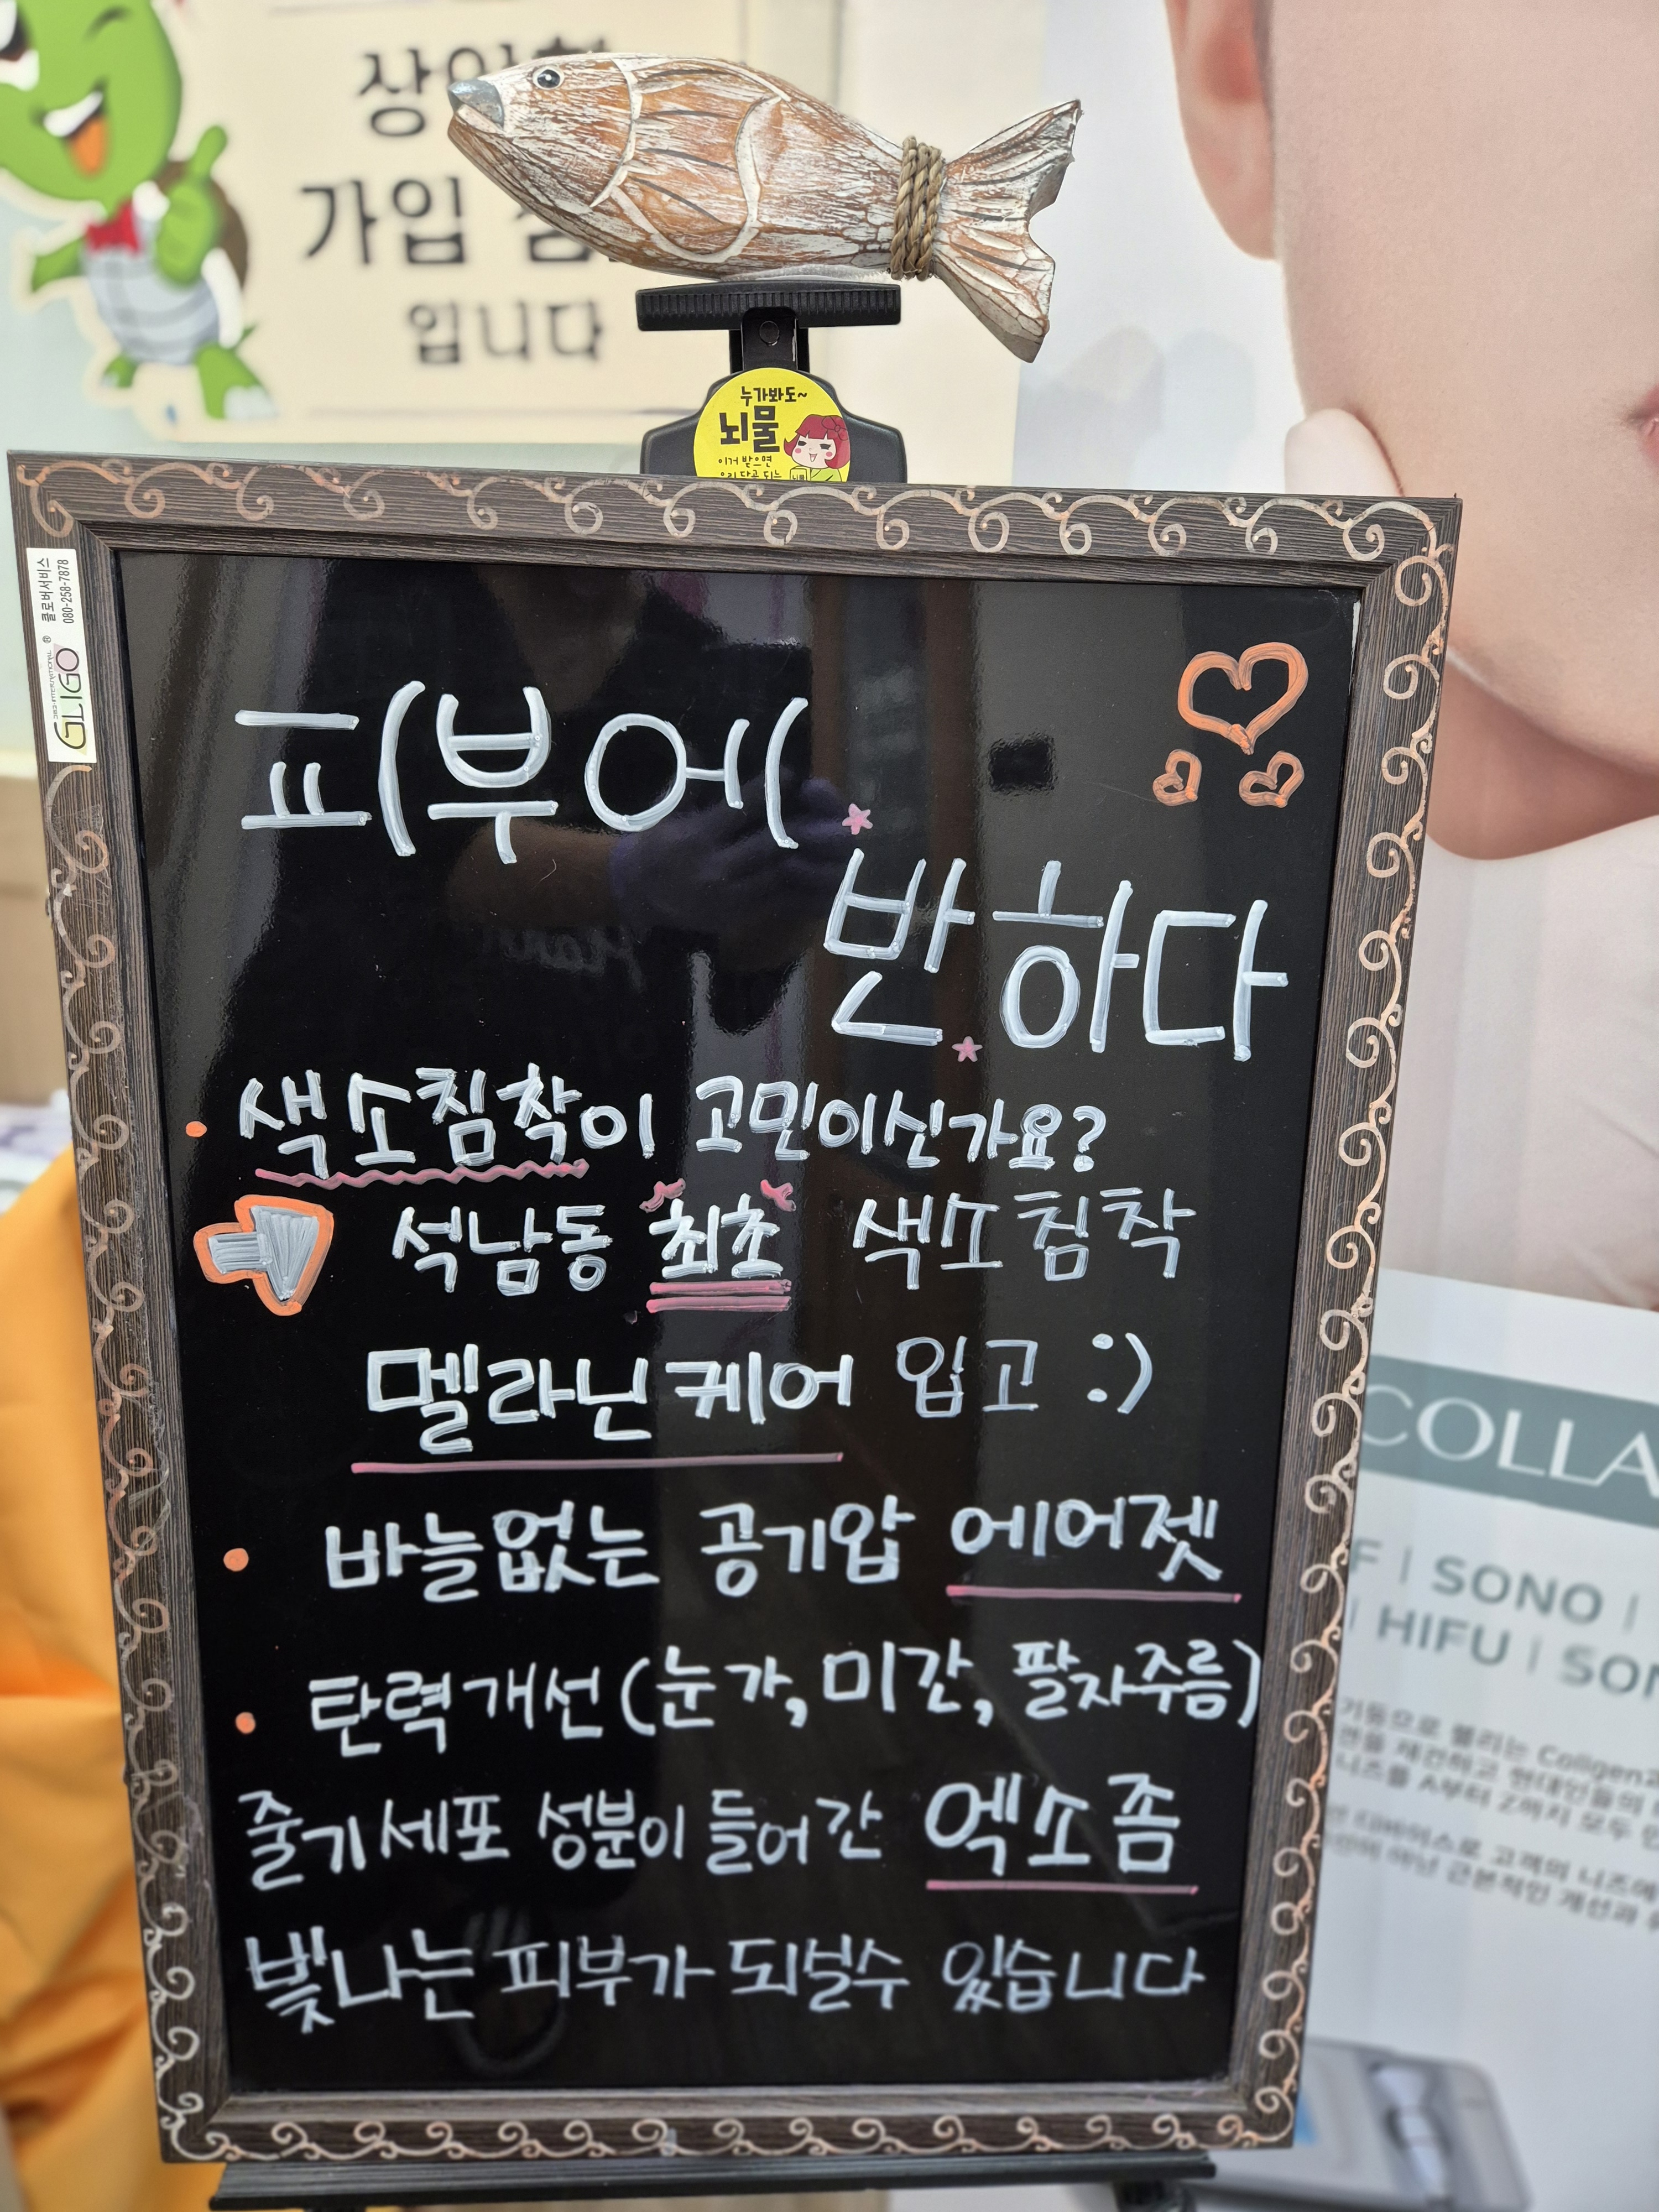 가입
입니다
누가봐도~
뇌물
이거 받으면
클로버서비스
080-258-7878
GLIGO
피부에
반하다
색소침착이 고민이신가요?
석남동 최초 색소침착
멜라닌케어 입고 :)
바늘없는 공기압 에어젯
탄력개선(눈가, 미간, 팔자주름)
줄기세포 성분이 들어간 엑소좀
빛나는 피부가 되실수 있습니다
COLLA
F | SONO |
| HIFU | SON